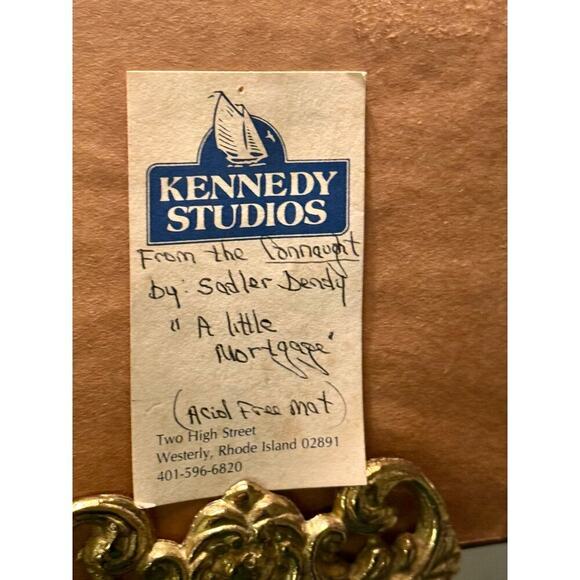 KENNEDY
STUDIOS
From the Connaught
by: Sadler Dendy
"A little
Mortgage"
(Acid Free mat)
Two High Street
Westerly, Rhode Island 02891
401-596-6820